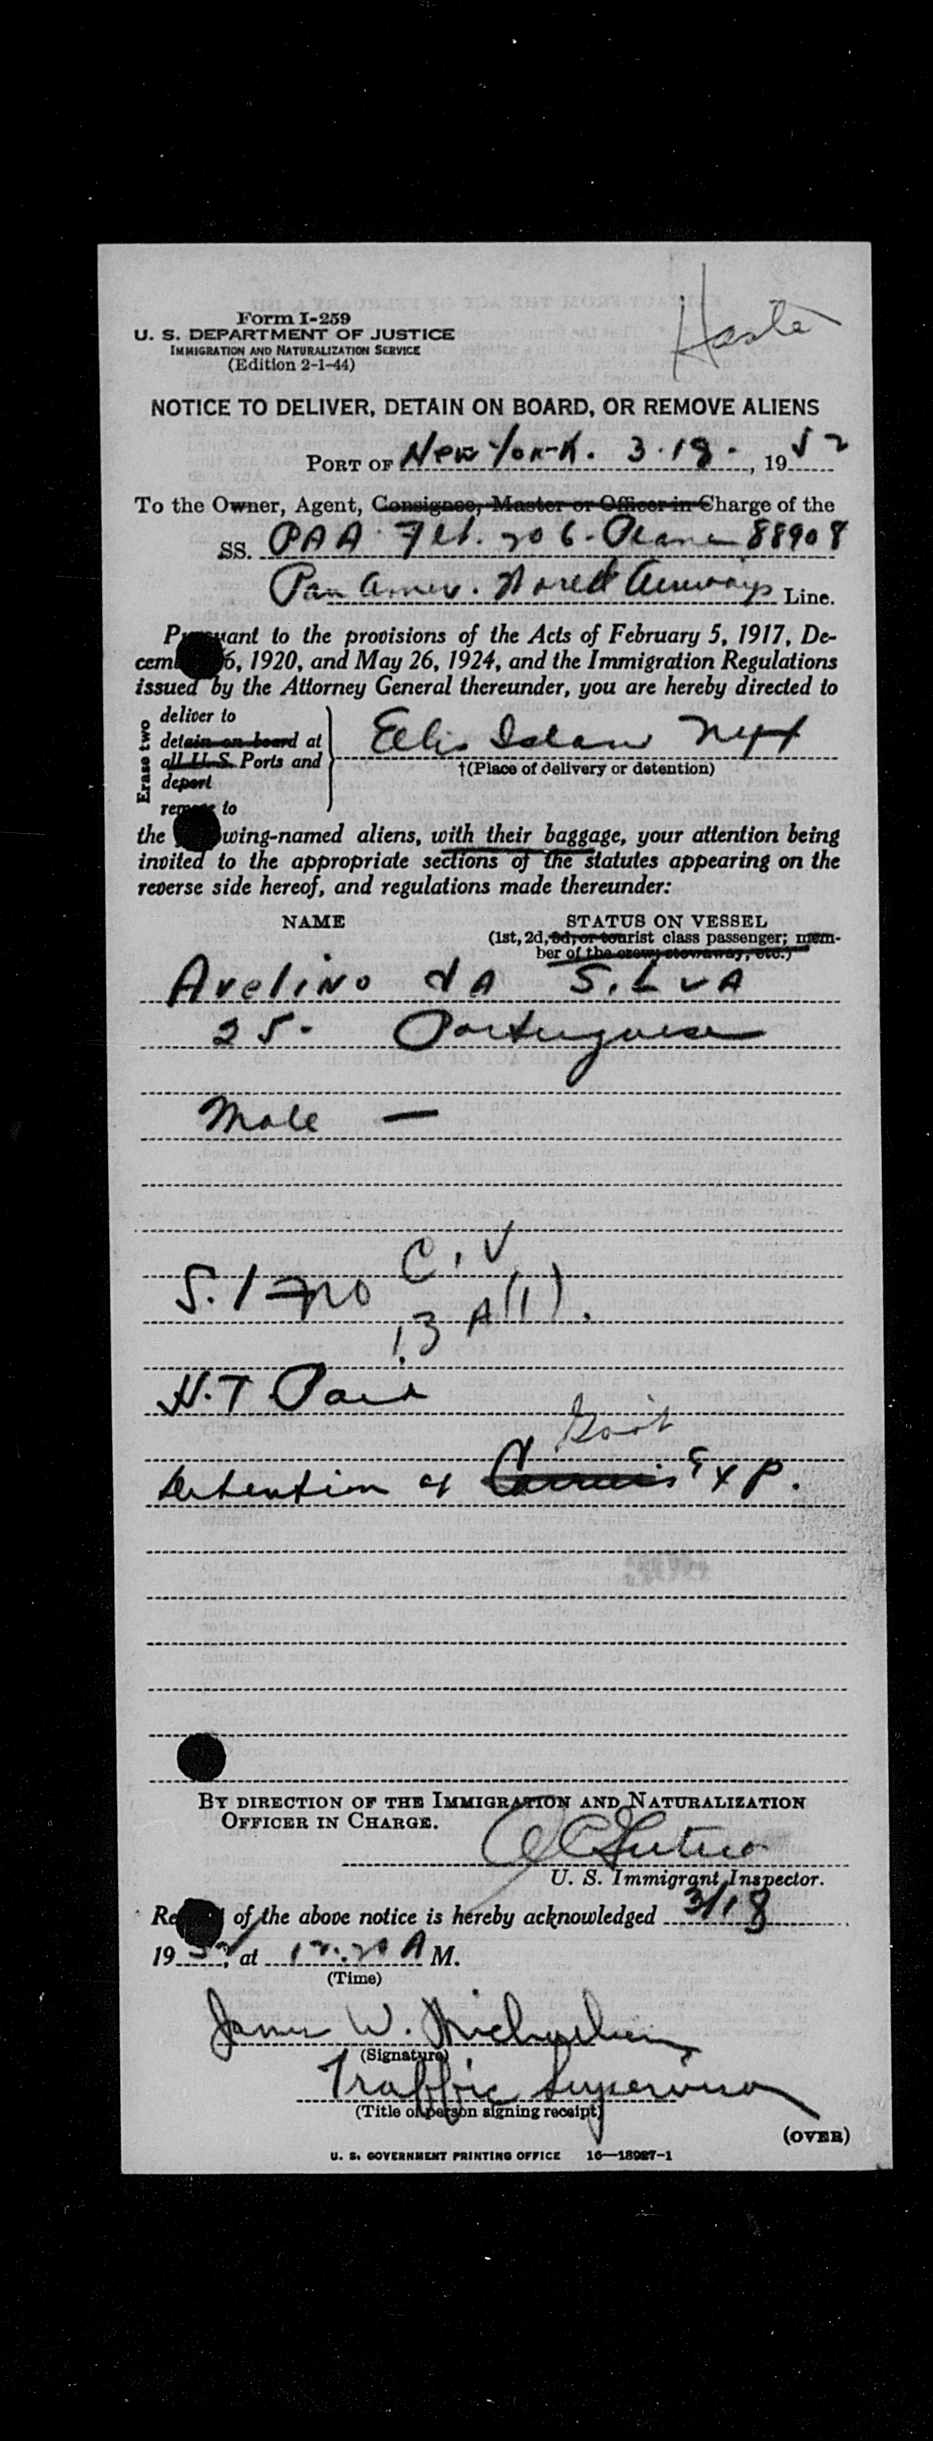 Haste
Form I-259
U. S. DEPARTMENT OF JUSTICE
IMMIGRATION AND NATURALIZATION SERVICE
(Edition 2-1-44)
NOTICE TO DELIVER, DETAIN ON BOARD, OR REMOVE ALIENS
PORT OF New York. 3.18., 1952
To the Owner, Agent, Consignee, Master or Officer in Charge of the
SS. PAA Flt. 206. Plane 88908
Pan Amer. World Airways Line.
Pursuant to the provisions of the Acts of February 5, 1917, De-
cem 6, 1920, and May 26, 1924, and the Immigration Regulations
issued by the Attorney General thereunder, you are hereby directed to
Erase two
deliver to
detain on board at
all U.S. Ports and
deport
remove to
Ellis Island NYH
†(Place of delivery or detention)
the wing-named aliens, with their baggage, your attention being
invited to the appropriate sections of the statutes appearing on the
reverse side hereof, and regulations made thereunder:
NAME
STATUS ON VESSEL
(1st, 2d, 3d, or tourist class passenger; mem-
ber of the crew, stowaway, etc.)
Avelino dA SILVA
25. Portuguese
Male —
S.I no C.V
13 A(1).
H.T Paid
Gov't
Detention at Carrier's Exp.
BY DIRECTION OF THE IMMIGRATION AND NATURALIZATION
OFFICER IN CHARGE.
U. S. Immigrant Inspector.
Re of the above notice is hereby acknowledged 3/18
1952, at 12:20 A M.
(Time)
James W.
(Signature)
Traffic Supervisor
(Title of person signing receipt)
(OVER)
U. S. GOVERNMENT PRINTING OFFICE 16—18927-1